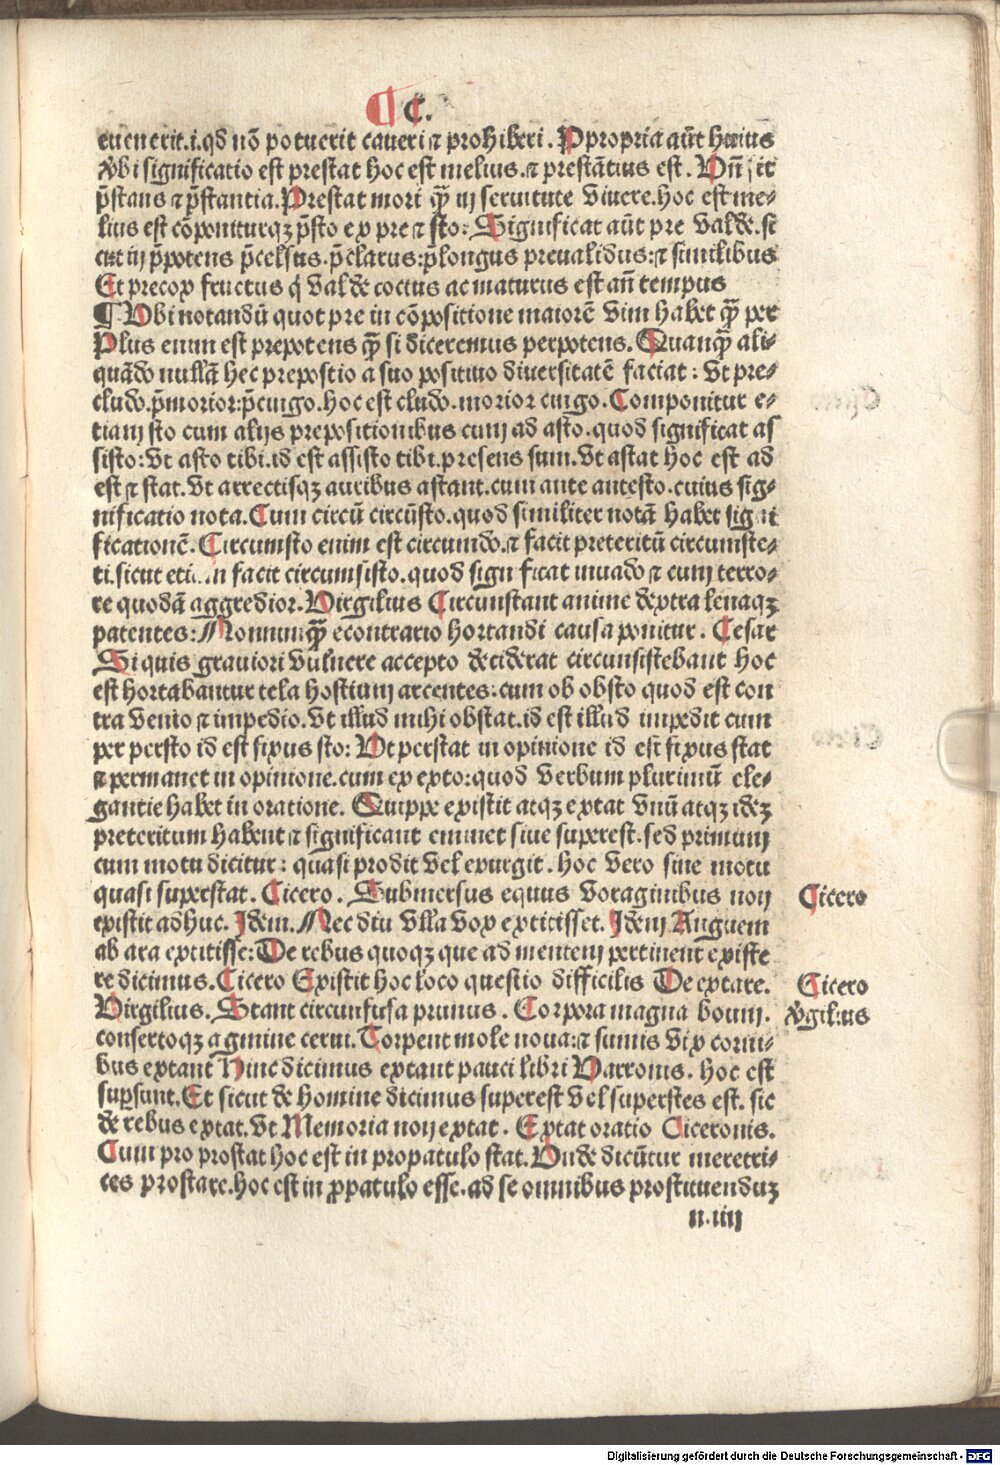 C.
euenerit.i.qd nō potuerit caueri ⁊ prohiberi. Ppropria aūt huius
v̄bi significatio est prestat hoc est melius.⁊ prestātius est. Vn̄ sit
p̄stans ⁊ p̄stantia.Prestat mori q̄ꝫ in seruitute viuere.hoc est me⸗
lius est cōponiturqꝫ p̄sto ex pre ⁊ sto: Significat aūt pre valde.si
cut in p̄potens p̄celsus.p̄clarus:p̄longus preualidus:⁊ similibus
Et precox fructus q́ valde coctus ac maturus est an̄ tempus
¶ Vbi notandū quot pre in cōpositione maiorē vim habet q̄ꝫ per
Plus enim est prepotens q̄ꝫ si diceremus perpotens. Quanq̄ꝫ ali⸗
quādo nullā hec prepostio a suo positiuo diuersitatē faciat: vt pre⸗
cludo.p̄morior:p̄cingo.hoc est cludo.morior cingo.Componitur e⸗
tiam sto cum alijs prepositionibus cum ad asto.quod significat as
sisto:vt asto tibi.id est assisto tibi.presens sum.vt astat hoc est ad
est ⁊ stat.vt arrectisqꝫ auribus astant.cum ante antesto.cuius sig⸗
nificatio nota.Cum circū circūsto.quod similiter notā habet signi
ficationē.Circumsto enim est circumdo.⁊ facit preteritū circumste⸗
ti.sicut facit circumsisto.quod significat inuado ⁊ cum terro⸗
re quodā aggredior.Virgilius Circunstant anime dextra lenaqꝫ
patentes:Nonnunq̄ꝫ econtrario hortandi causa ponitur. Cesar
Si quis grauiori vulnere accepto deciderat circunsistebant hoc
est hortabantur tela hostium arcentes:cum ob obsto quod est con
tra venio ⁊ impedio.vt illud mihi obstat.id est illud impedit cum
per persto id est fixus sto: Vt perstat in opinione id est fixus stat
⁊ permanet in opinione.cum ex exto:quod verbum plurimū ele⸗
gantie habet in oratione. Quippe existit atqꝫ extat vnū atqꝫ idēꝫ
preteritum habent ⁊ significant eminet siue superest.sed primum
cum motu dicitur: quasi prodit vel exurgit. hoc vero sine motu
quasi superstat. Cicero. Submersus equus voraginibus non
existit adhuc. Idem.Nec diu vlla vox extitisset. Idem Anguem
ab ara extitisse:De rebus quoqꝫ que ad mentem pertinent existe
re dicimus.Cicero Existit hoc loco questio difficilis De extare.
Virgilius. Stant circunfusa primus. Corpora magna boum.
consertoqꝫ agmine cerui.Torpent mole noua:⁊ sumis vix corni⸗
bus extant Hinc dicimus extant pauci libri Varronis. hoc est
suꝑsunt.Et sicut de homine dicimus superest vel superstes est. sic
de rebus extat.vt Memoria non extat. Extat oratio Ciceronis.
Cum pro prostat hoc est in propatulo stat.Vnde dicūtur meretri⸗
ces prostare.hoc est in ꝓpatulo esse.ad se omnibus prostituenduꝫ
n.iiij
Cicero
Cicero
v̄gilius
Digitalisierung gefördert durch die Deutsche Forschungsgemeinschaft - DFG